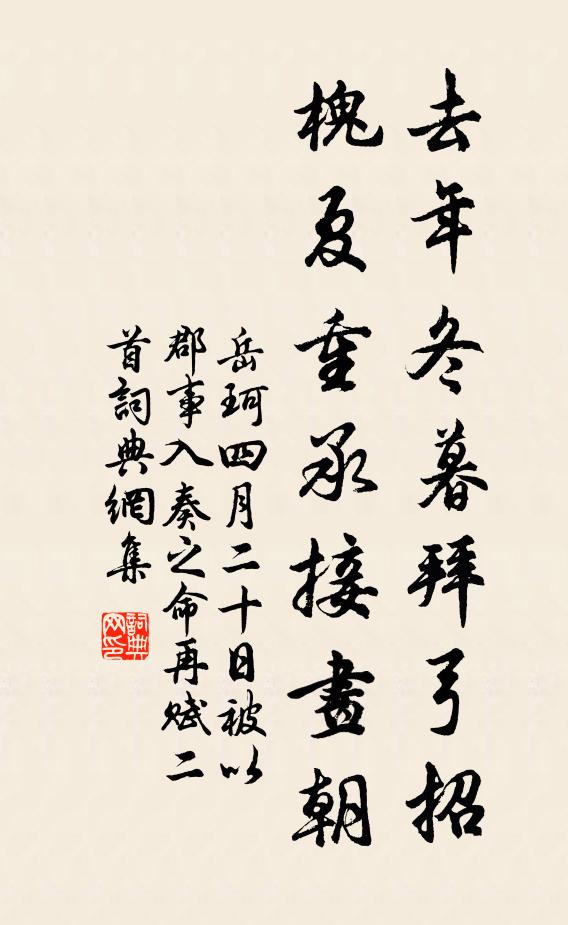 去年冬暮拜弓招
槐夏重承接晝朝
岳珂四月二十日被以
郡事入奏之命再赋二
首詞典網集
詞典网印